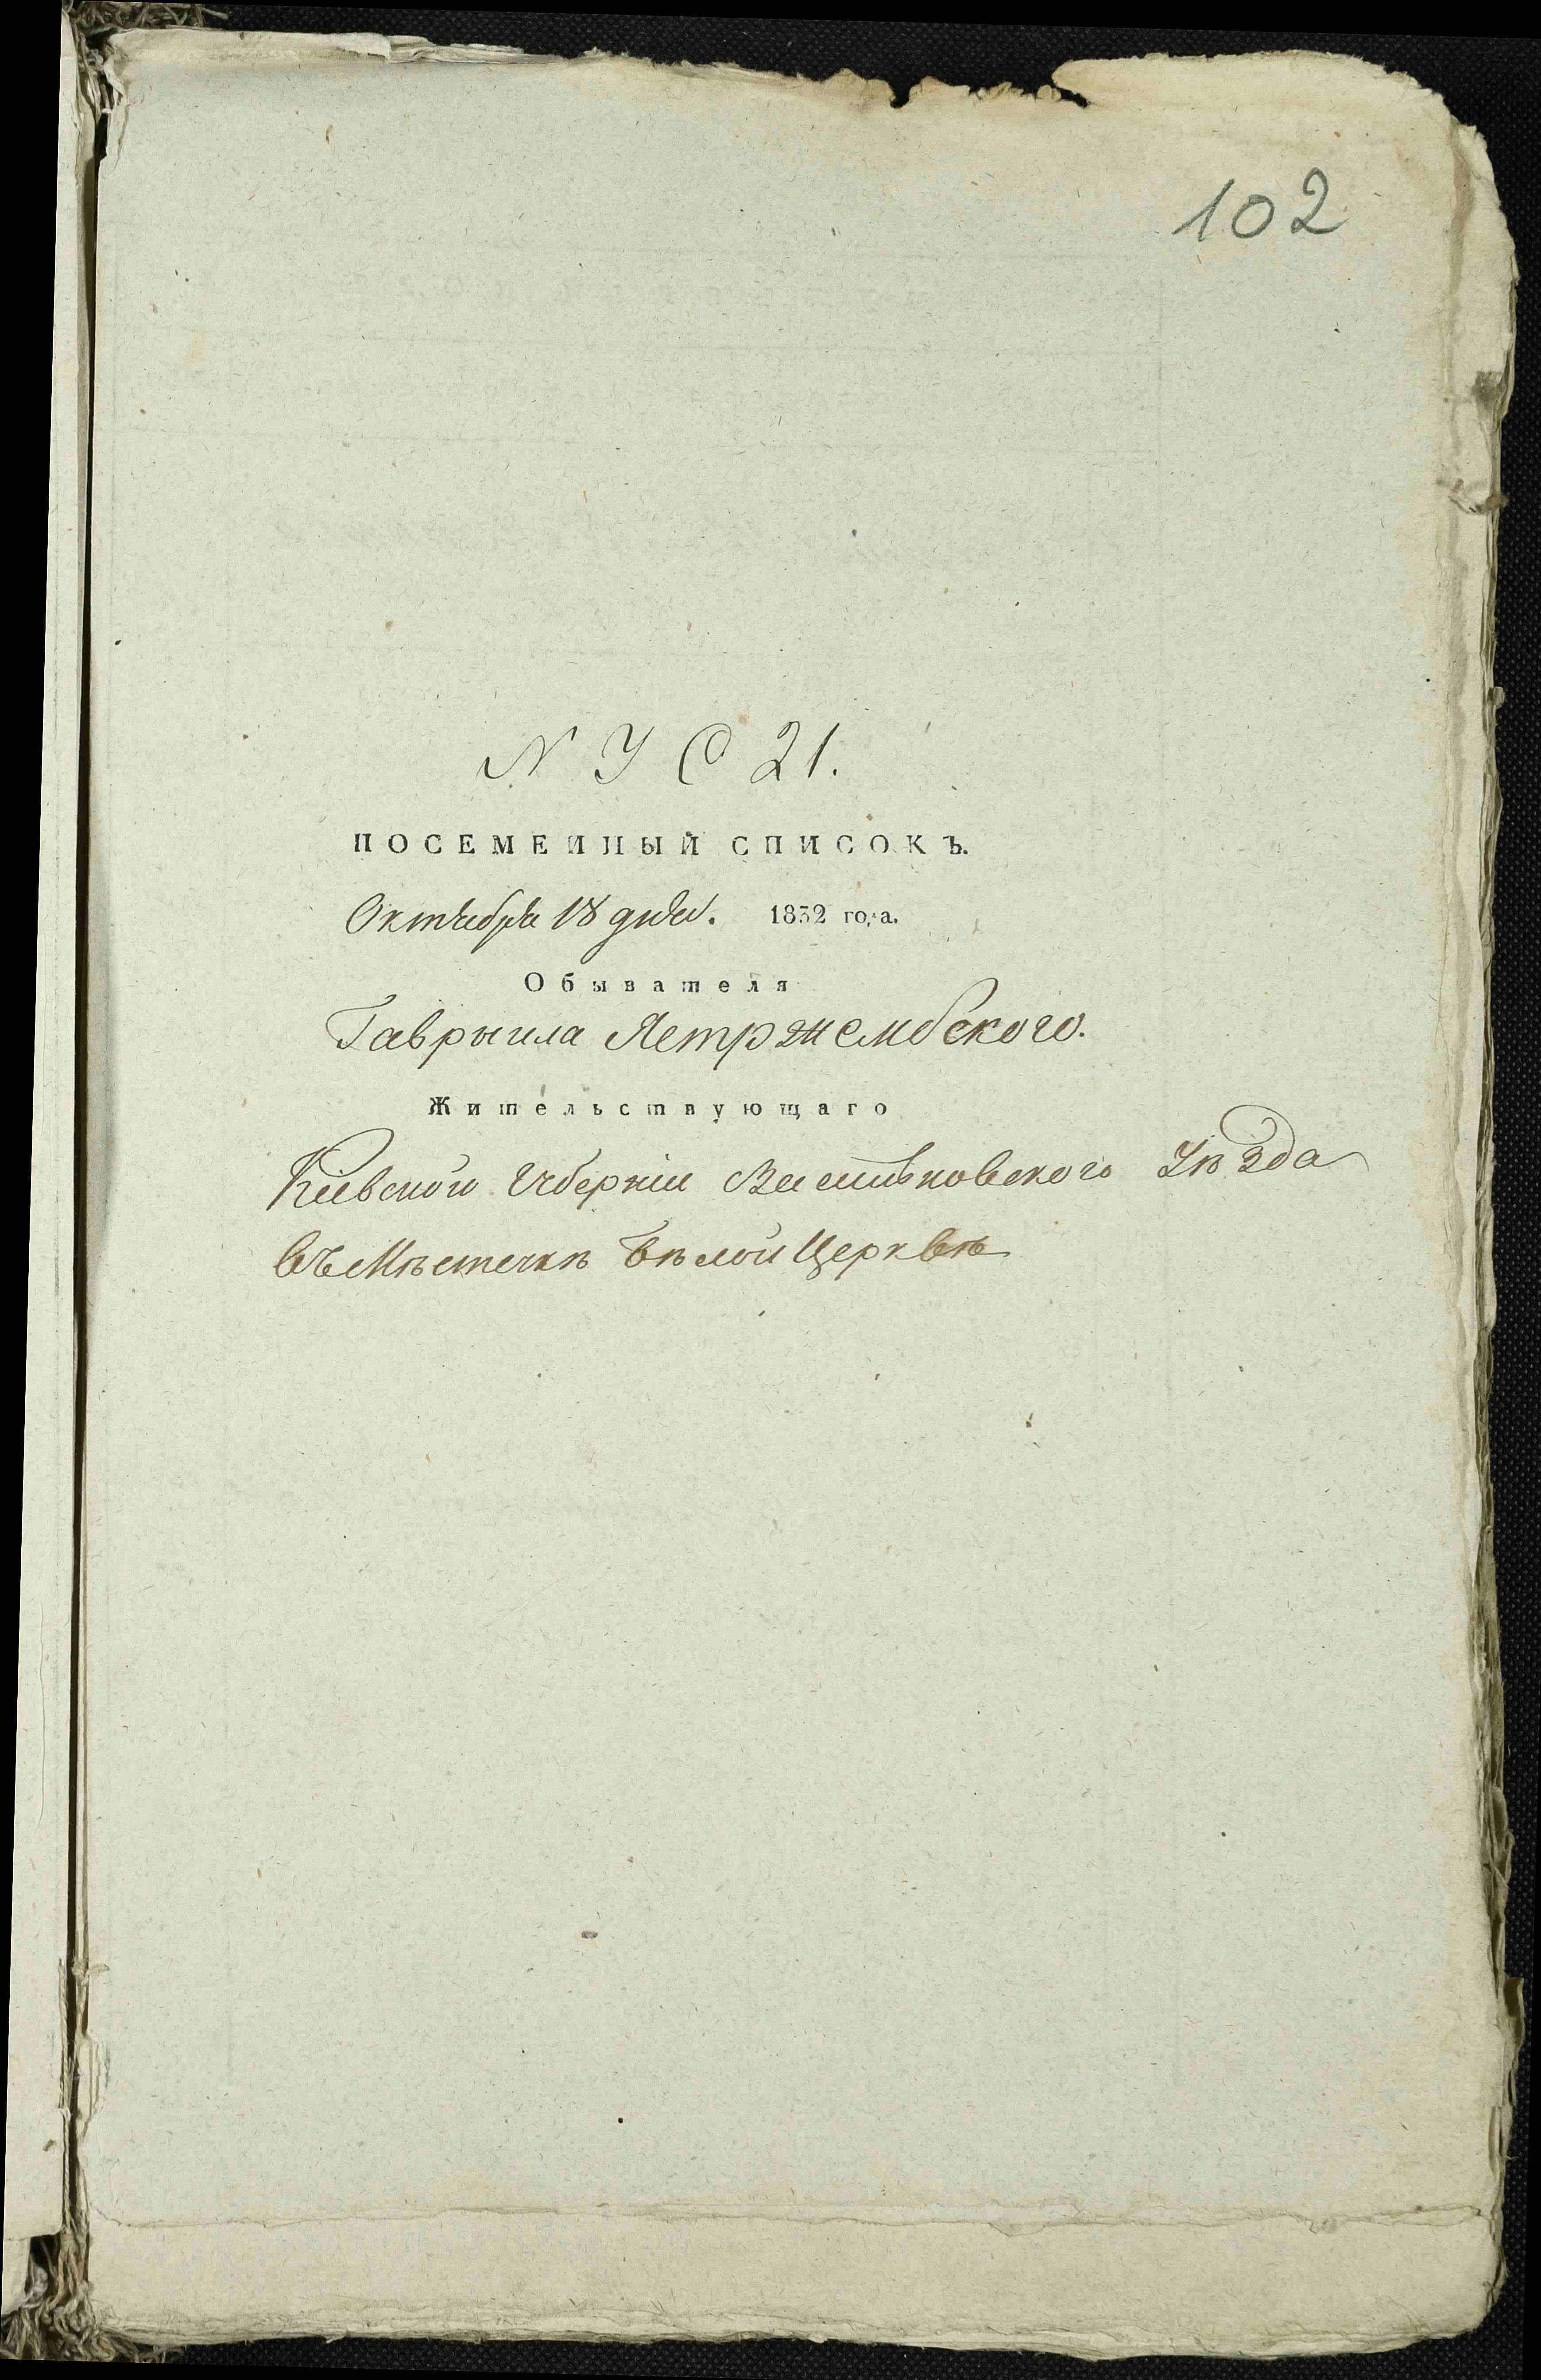 102
N У С 21.
ПОСЕМЕЙНЫЙ СПИСОКЪ.
Октября 18 дня. 1832 года.
Обывателя
Гаврыила Ястржембского.
Жительствующаго
Кіевской Губерніи Васильковского Уѣзда
въ Мѣстечкѣ Бѣлой Церквѣ